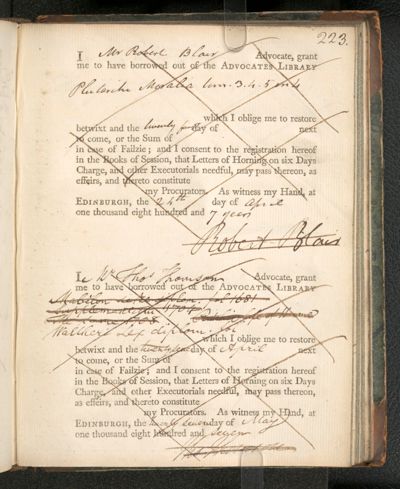 223.
I Mr Robert Blair Advocate, grant
me to have borrowed out of the ADVOCATES LIBRARY
Plutarchi Moralia tom. 3. 4. 5 in 4
which I oblige me to restore
betwixt and the twenty day of next
to come, or the Sum of
in case of Failzie; and I consent to the registration hereof
in the Books of Session, that Letters of Horning on six Days
Charge, and other Executorials needful, may pass thereon, as
effeirs, and thereto constitute
my Procurators. As witness my Hand, at
EDINBURGH, the 24th day of April
one thousand eight hundred and 7 years
Robert Blair
I Wm Thos Thomson Advocate, grant
me to have borrowed out of the ADVOCATES LIBRARY
fol 1681
1704
fol
which I oblige me to restore
betwixt and the day of April next
to come, or the Sum of
in case of Failzie; and I consent to the registration hereof
in the Books of Session, that Letters of Horning on six Days
Charge, and other Executorials needful, may pass thereon,
as effeirs, and thereto constitute
my Procurators. As witness my Hand, at
EDINBURGH, the twenty seven day of May
one thousand eight hundred and seven